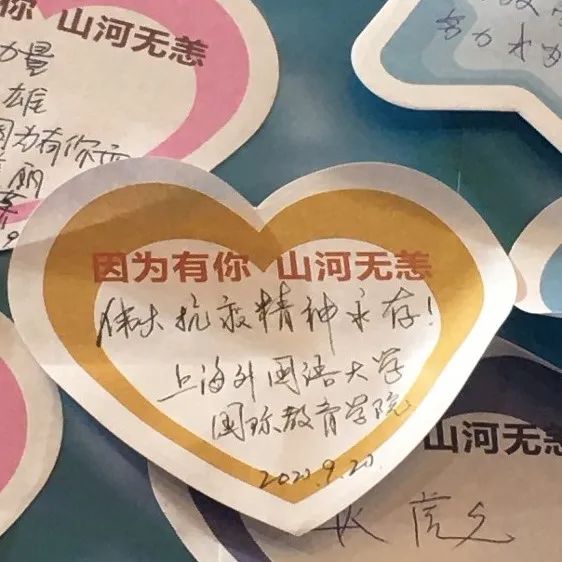 你 山河无恙
力量
雄
因为有你
丽
努力成为
因为有你 山河无恙
伟大抗疫精神永存!
上海外国语大学
国际教育学院
2020.9.20.
山河无恙